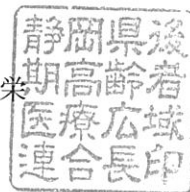 栄
静岡県後
期高齢者
医療広域
連合長印